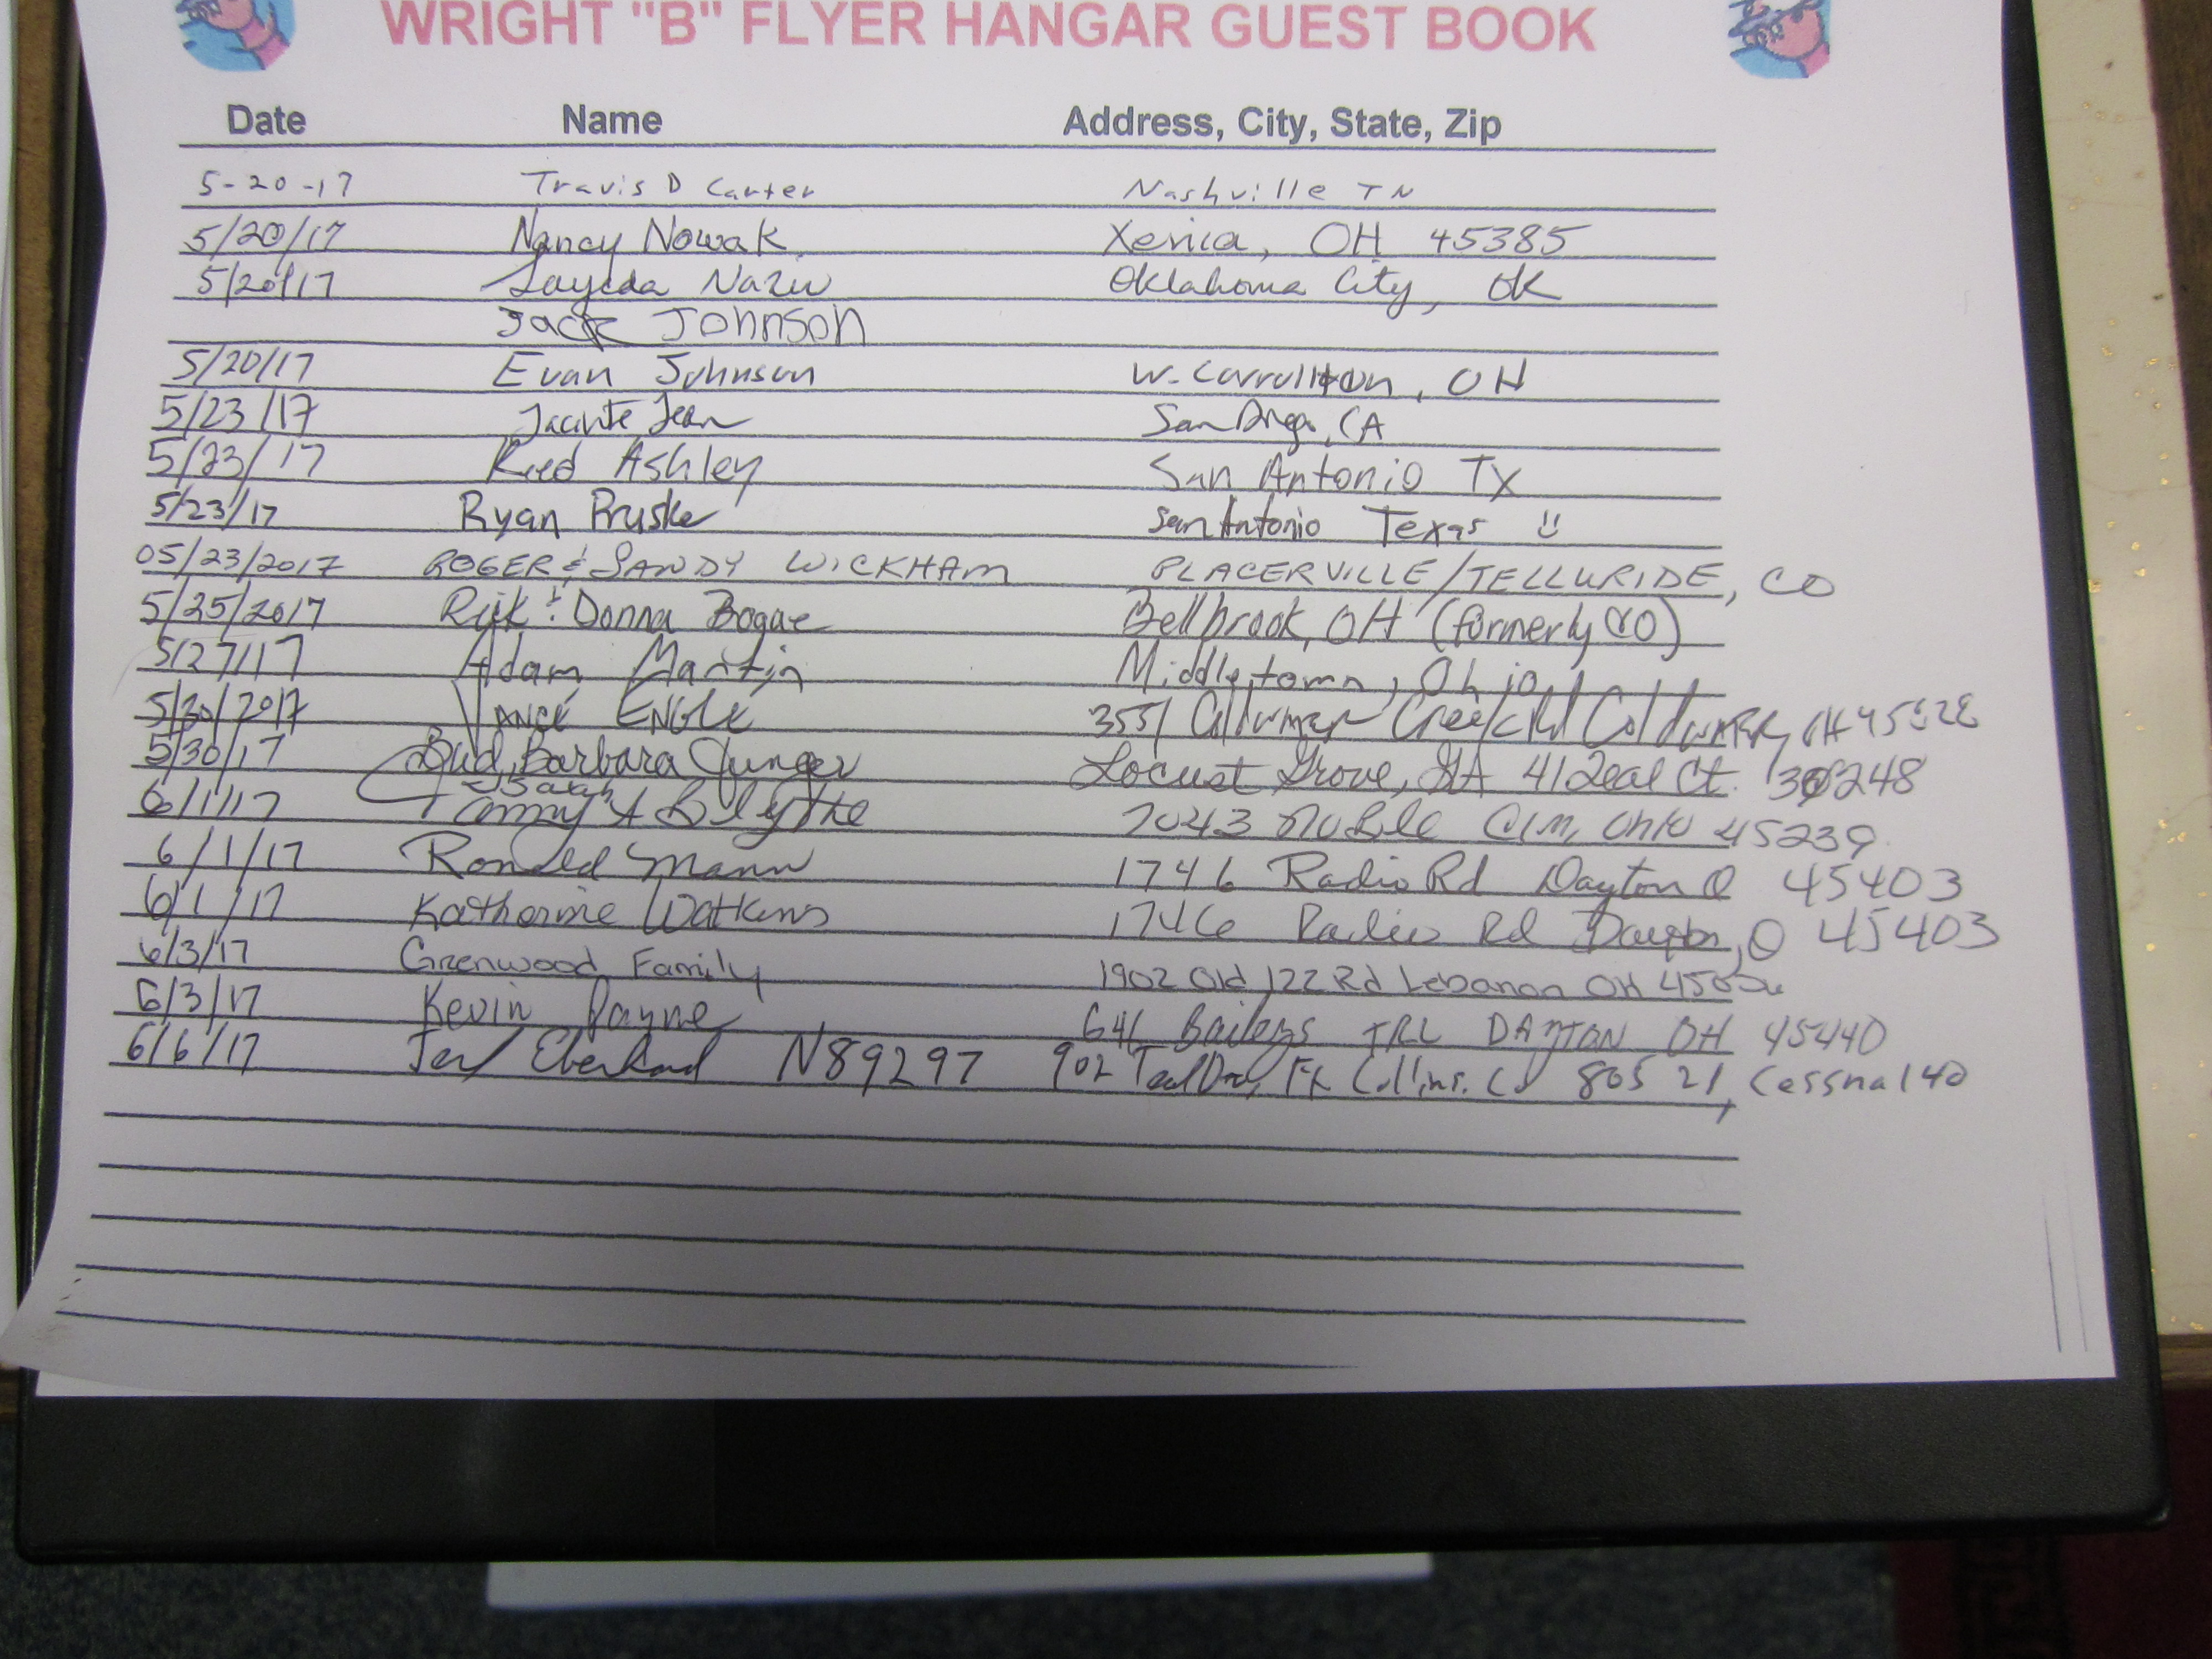 WRIGHT "B" FLYER HANGAR GUEST BOOK
Date Name Address, City, State, Zip
5-20-17 Travis D Carter Nashville TN
5/20/17 Nancy Nowak Xenia, OH 45385
5/20/17 Sayeda Oklahoma City, OK
Jack Johnson
5/20/17 Evan Johnson W. Carrollton, OH
5/23/17 Jean San Diego, CA
5/23/17 Ashley San Antonio TX
5/23/17 Ryan Pruske San Antonio Texas
05/23/2017 ROGER & SANDY WICKHAM PLACERVILLE/TELLURIDE, CO
5/25/2017 Rik & Donna Bogue Bellbrook, OH (formerly CO)
5/27/17 Adam Martin Middletown, Ohio
5/30/2017 VANCE ENGLE 3551 Creek Rd OH
5/30/17 Bud, Barbara Junger Locust Grove, GA 41 Zeal Ct. 30248
Sarah
6/1/17 A Blythe 7043 Mobile Cin, Ohio 45239
6/1/17 Ronald Mann 1746 Radio Rd Dayton O 45403
6/1/17 Katherine Watkins 1746 Radio Rd Dayton, O 45403
6/3/17 Grenwood Family 1902 Old 122 Rd Lebanon OH
6/3/17 Kevin Payne 641 Baileys TRL DAYTON OH 45440
6/6/17 N89297 902 Teal Dr, Ft Collins. Co 80521, Cessna 140